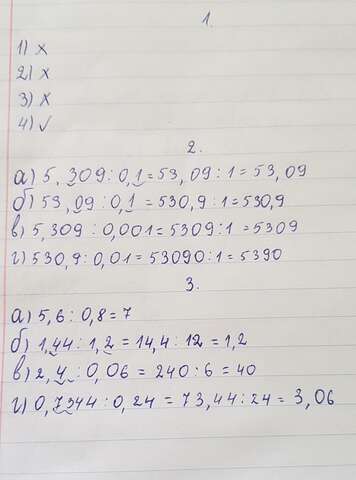 1.
1) x
2) x
3) x
4) ✓
2.
а) 5,309 : 0,1 = 53,09 : 1 = 53,09
б) 53,09 : 0,1 = 530,9 : 1 = 530,9
в) 5,309 : 0,001 = 5309 : 1 = 5309
г) 530,9 : 0,01 = 53090 : 1 = 5390
3.
а) 5,6 : 0,8 = 7
б) 1,44 : 1,2 = 14,4 : 12 = 1,2
в) 2,4 : 0,06 = 240 : 6 = 40
г) 0,7344 : 0,24 = 73,44 : 24 = 3,06